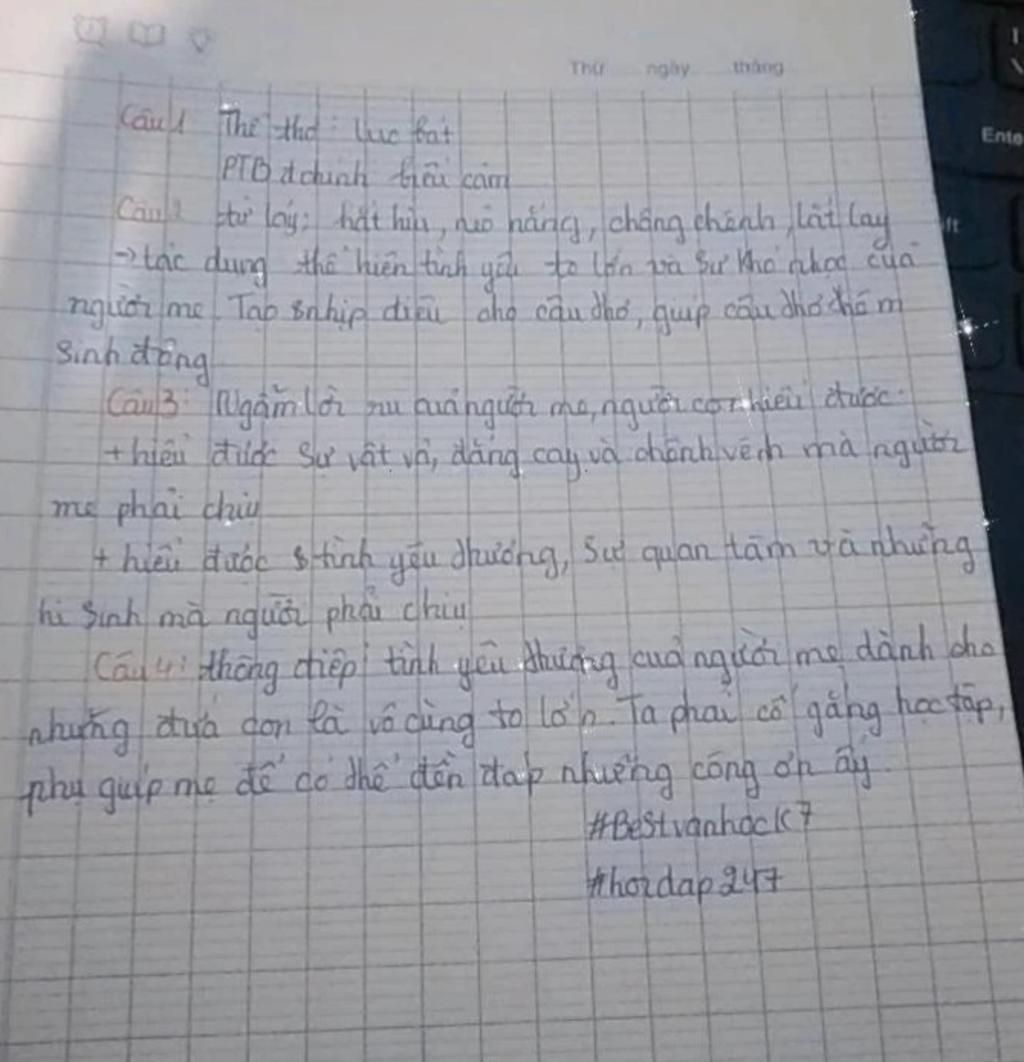 Thứ ngày tháng
Câu 1 Thể thơ: lục bát
PTBĐ chính biểu cảm
Câu 2 từ láy: hắt hiu, chông chênh, lắt lay
→ tác dụng thể hiện tình yêu to lớn và sự khó nhọc của
người mẹ. Tạo nhịp điệu cho câu thơ, giúp câu thơ thêm
sinh động
Câu 3: Ngẫm lời ru của người mẹ, người con hiểu được:
+ hiểu được sự vất vả, đắng cay và chênh vênh mà người
mẹ phải chịu
+ hiểu được tình yêu thương, sự quan tâm và những
hi sinh mà người phải chịu
Câu 4: thông điệp: tình yêu thương của người mẹ dành cho
những đứa con là vô cùng to lớn. Ta phải cố gắng học tập,
phụ giúp mẹ để có thể đền đáp những công ơn ấy.
#Bestvanhock7
#hoidap247
Ente